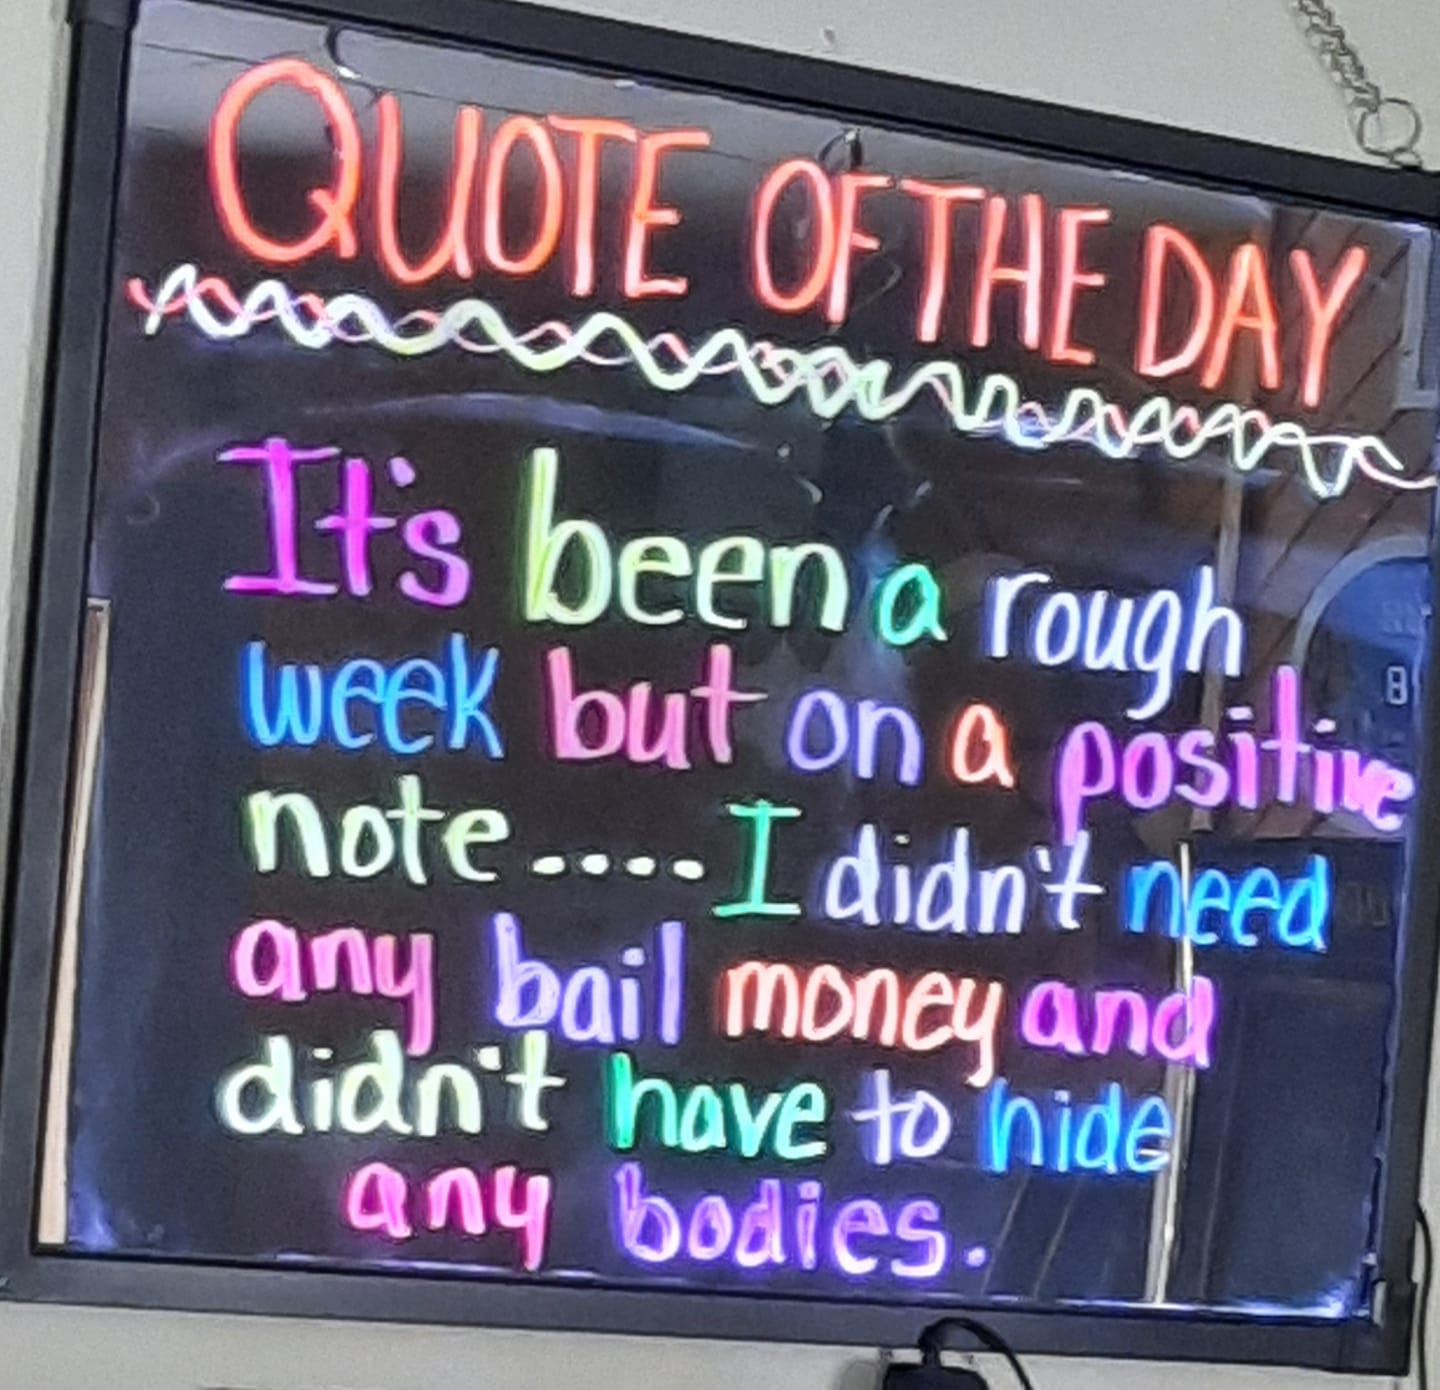 QUOTE OF THE DAY
It's been a rough
week but on a positive
note.....I didn't need
any bail money and
didn't have to hide
any bodies.
8